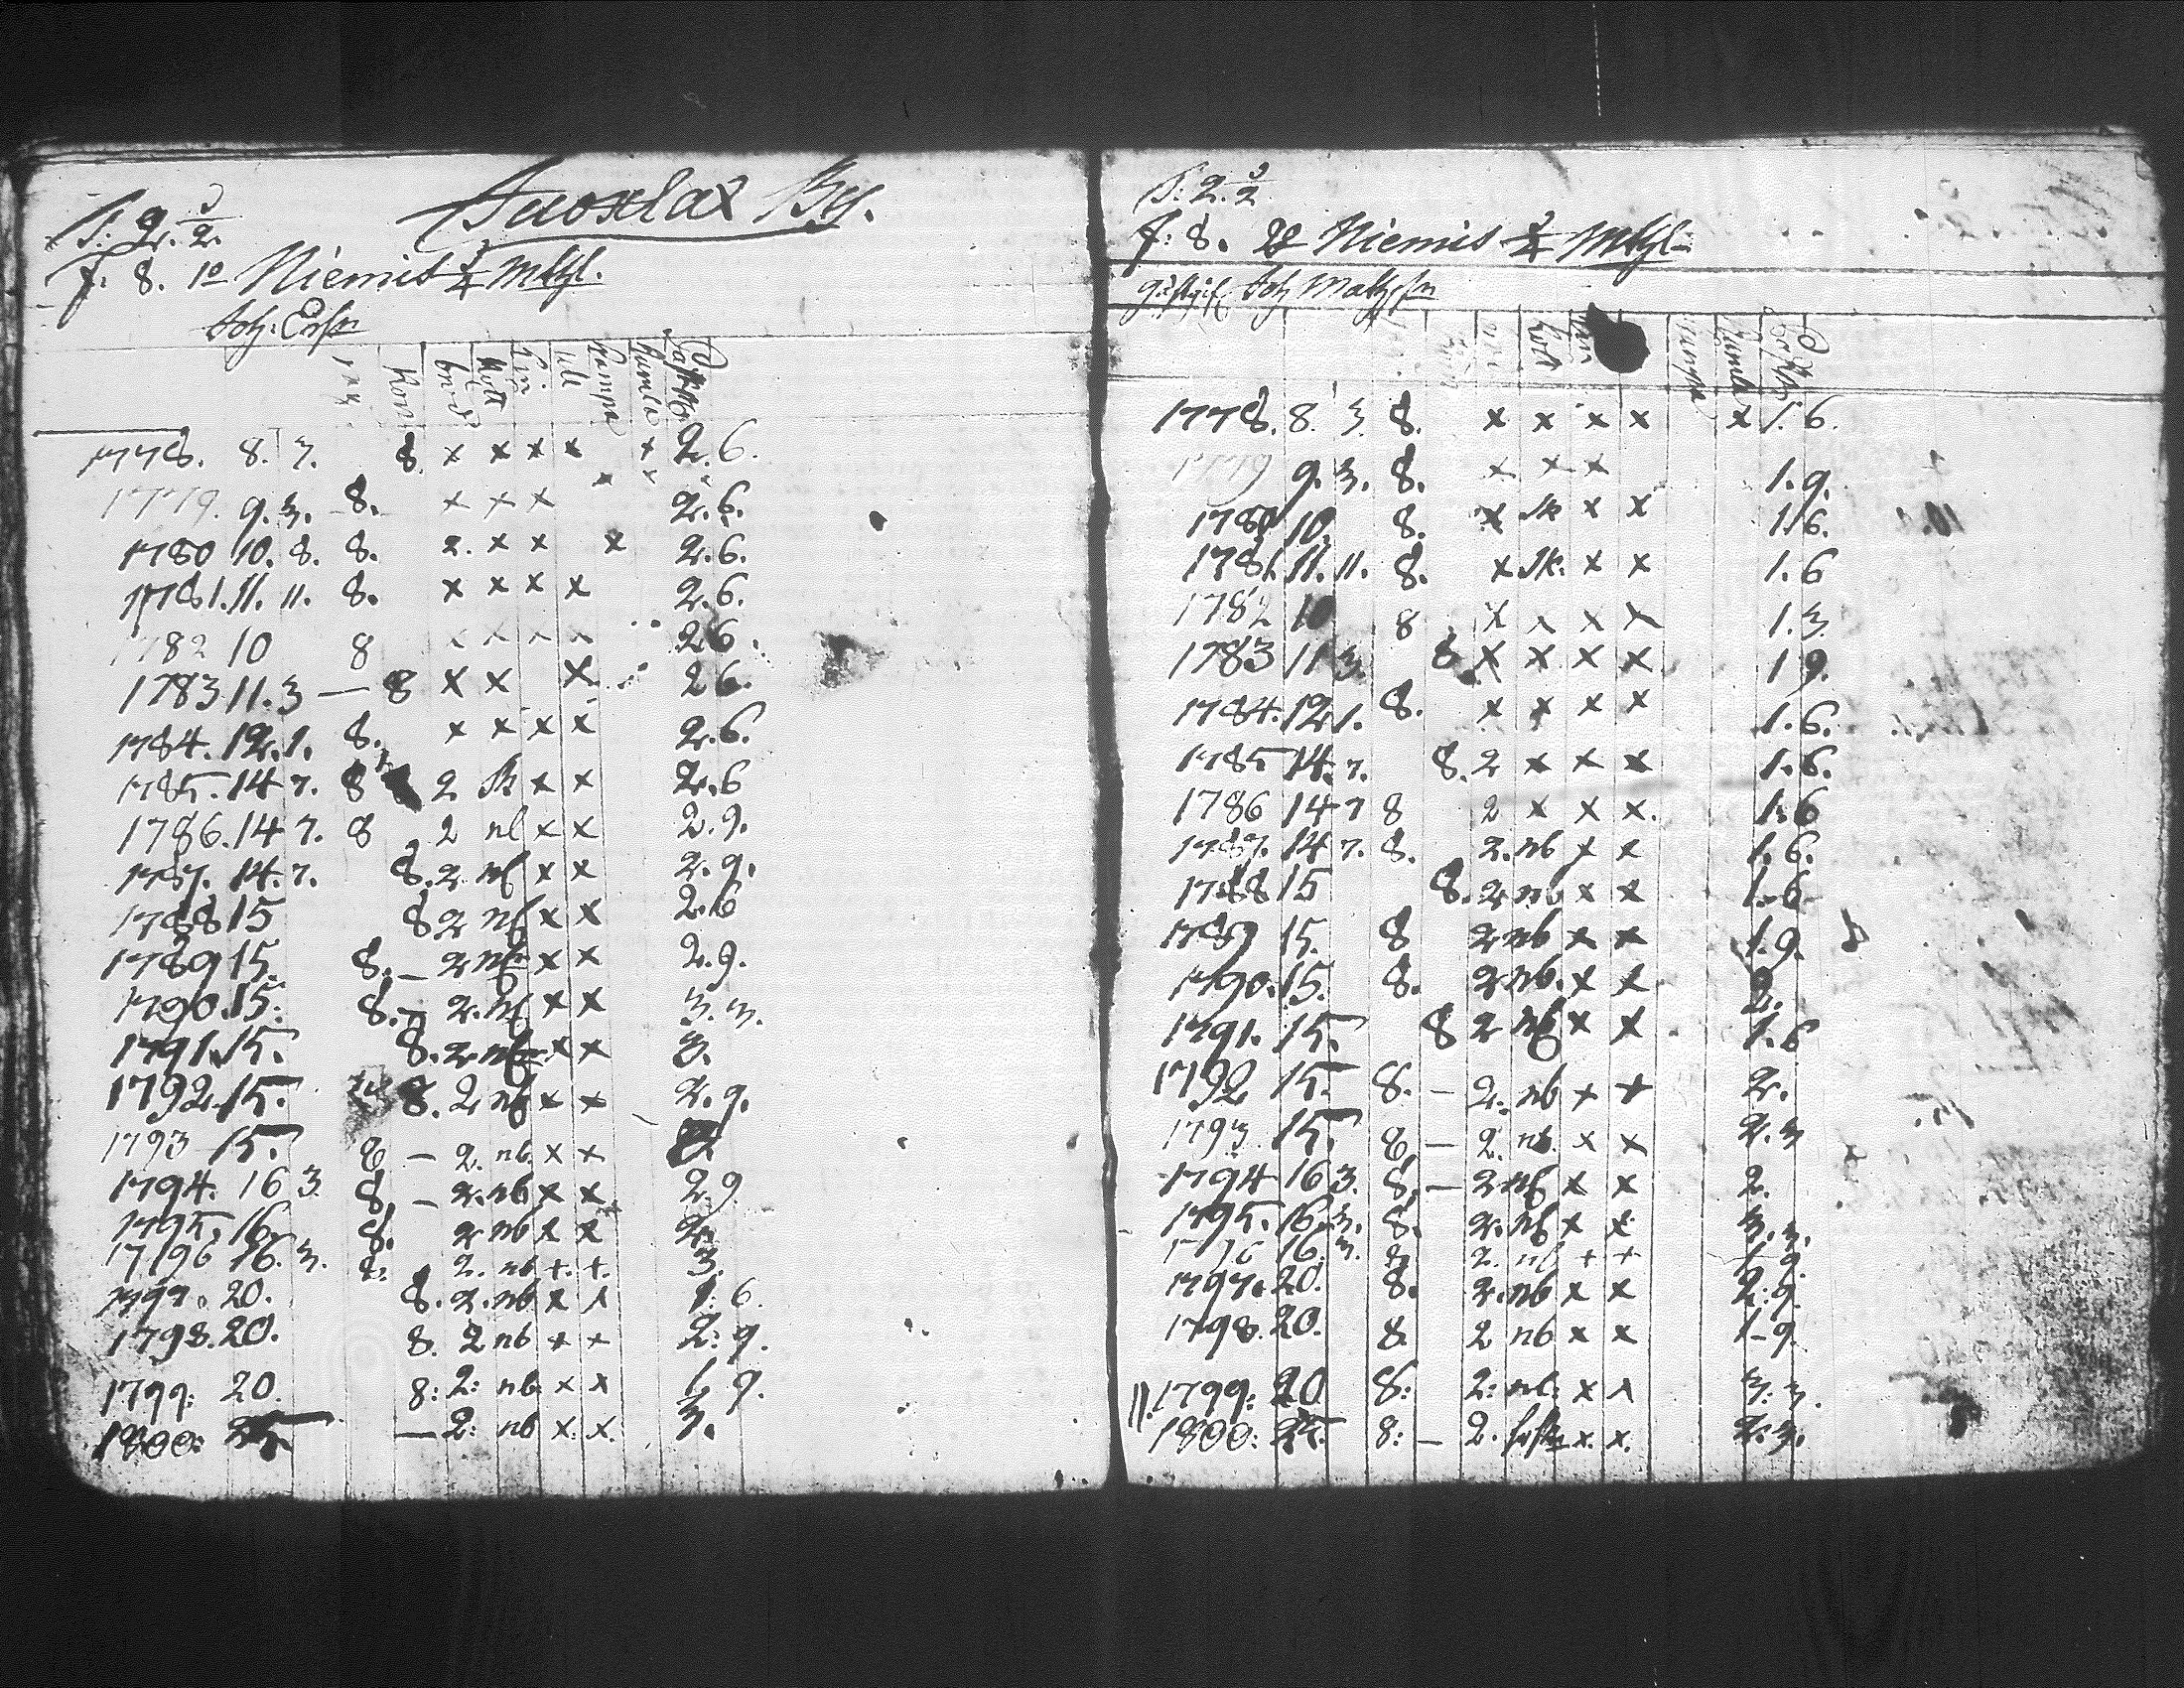 By.
8. 1o Niemis 3/4 Mtl.
Joh: Ersn
Råg Korn bröd Kött Lin ull Hampa humla
1778. 8. 3. 8. x x x x x 2. 6.
1779. 9. 3. 8. x x x 2. 6.
1780 10. 8. 8. 2. x x x 2. 6.
1781. 11. 11. 8. x x x x 2. 6.
1782 10 8 x x x x 2 6.
1783 11. 3 — 8 x x x 2 6.
1784. 12. 1. 8. x x x x 2. 6.
1785. 14 7. 8 2 x x 2. 6
1786. 14 7. 8 2 nb x x 2. 9.
1787. 14. 7. 8. 2 nb x x 2. 9.
1788 15 8 2 nb x x 2. 6
1789 15. 8. — 2 nb x x 2. 9.
1790. 15. 8. — 2. nb x x 3. 3.
1791. 15. 8. 2. nb x x 3.
1792. 15. 8. 2 nb x x 2. 9.
1793 15. 8 — 2. nb. x x
1794. 16 3 8. — 2. nb x x 2. 9
1795. 16. 8. 2 nb x x 2.
17196 16. 3. 8. 2. nb +. +. 3.
1797. 20. 8. 2. nb x x 1. 6.
1798. 20. 8. 2 nb x x 2: 9.
1799: 20. 8: 2: nb. x x 1 9.
1800: 25 — 2: nb x. x. 3.
8. 2o Niemis 3/4 Mtl
Joh Mattsson
Kött humla
1778. 8. 3. 8. x x x x x 1. 6.
1779 9. 3. 8. x x x 1. 9.
1780 10. 8. x sk x x 1. 6.
1781. 11. 11. 8. x sk. x x 1. 6
1782 10 8 x x x x 1. 3.
1783 11 3. 8 x x x x 1 9.
1784. 12 1. 8. x x x x 1. 6.
1785 14. 7. 8. 2 x x x 1. 6.
1786 14 7 8 2 x x x. 1. 6
1787. 14 7. 8. 2. nb x x 1. 6.
1788 15 8. 2 nb x x 1. 6
1789 15. 8 2 nb x x 1. 9.
1790. 15. 8. 2 nb. x x 2.
1791. 15. 8 2 nb x x 1. 6
1792 15. 8. — 2. nb x x 2.
1793 15. 8 — 2. nb. x x 2. 3
1794 16 3. 8. — 2 nb x x 2.
1795. 16. 3. 8. 2. nb x x 3. 3.
1796 16. 3. 8. 2. nb + + 1 9.
1797. 20. 8. 2. nb x x 2. 9.
1798. 20. 8. 2 nb x x 1 - 9.
1799: 20 8: 2: nb: x x 3. 3.
1800: 25. 8: — 2. x. x. 2. 3.